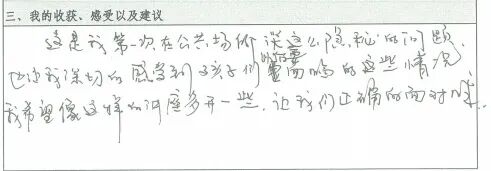 三、我的收获、感受以及建议
这是我第一次在公共场所谈这么隐私的问题,
也让我深切的感受到了孩们需要面临的这些情况,
我希望像这样的讲座多开一些,让我们正确的面对